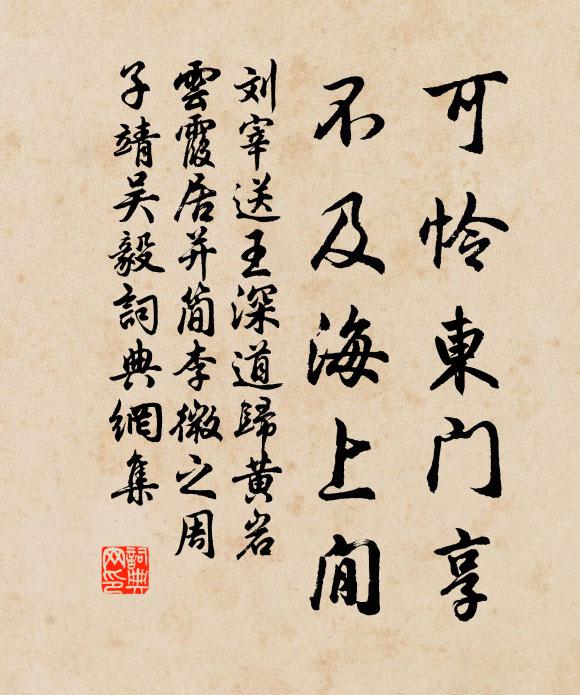 可怜東门享
不及海上閒
刘宰送王深道歸黄岩
雲霞居并简李微之周
子靖吴毅詞典網集
詞典网印